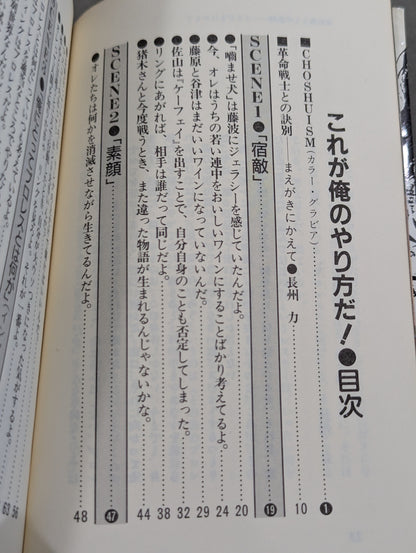 これが俺のやり方だ！●目次
CHOSHUISM（カラー・グラビア）……❶
革命戦士との訣別――まえがきにかえて●長州 力……10
SCENE1●「宿敵」……⓳
●「噛ませ犬」は藤波にジェラシーを感じていたんだよ。……20
●今、オレはうちの若い連中をおいしいワインにすることばかり考えてるよ。……24
●藤原と谷津はまだいいワインになっていないんだ。……29
●佐山は「ケーフェイ」を出すことで、自分自身のことも否定してしまった。……32
●リングにあがれば、相手は誰だって同じだよ。……38
●猪木さんと今度戦うとき、また違った物語が生まれるんじゃないかな。……44
SCENE2●「素顔」……㊼
●オレたちは何かを消滅させながら生きてるんだよ。……48
56
63